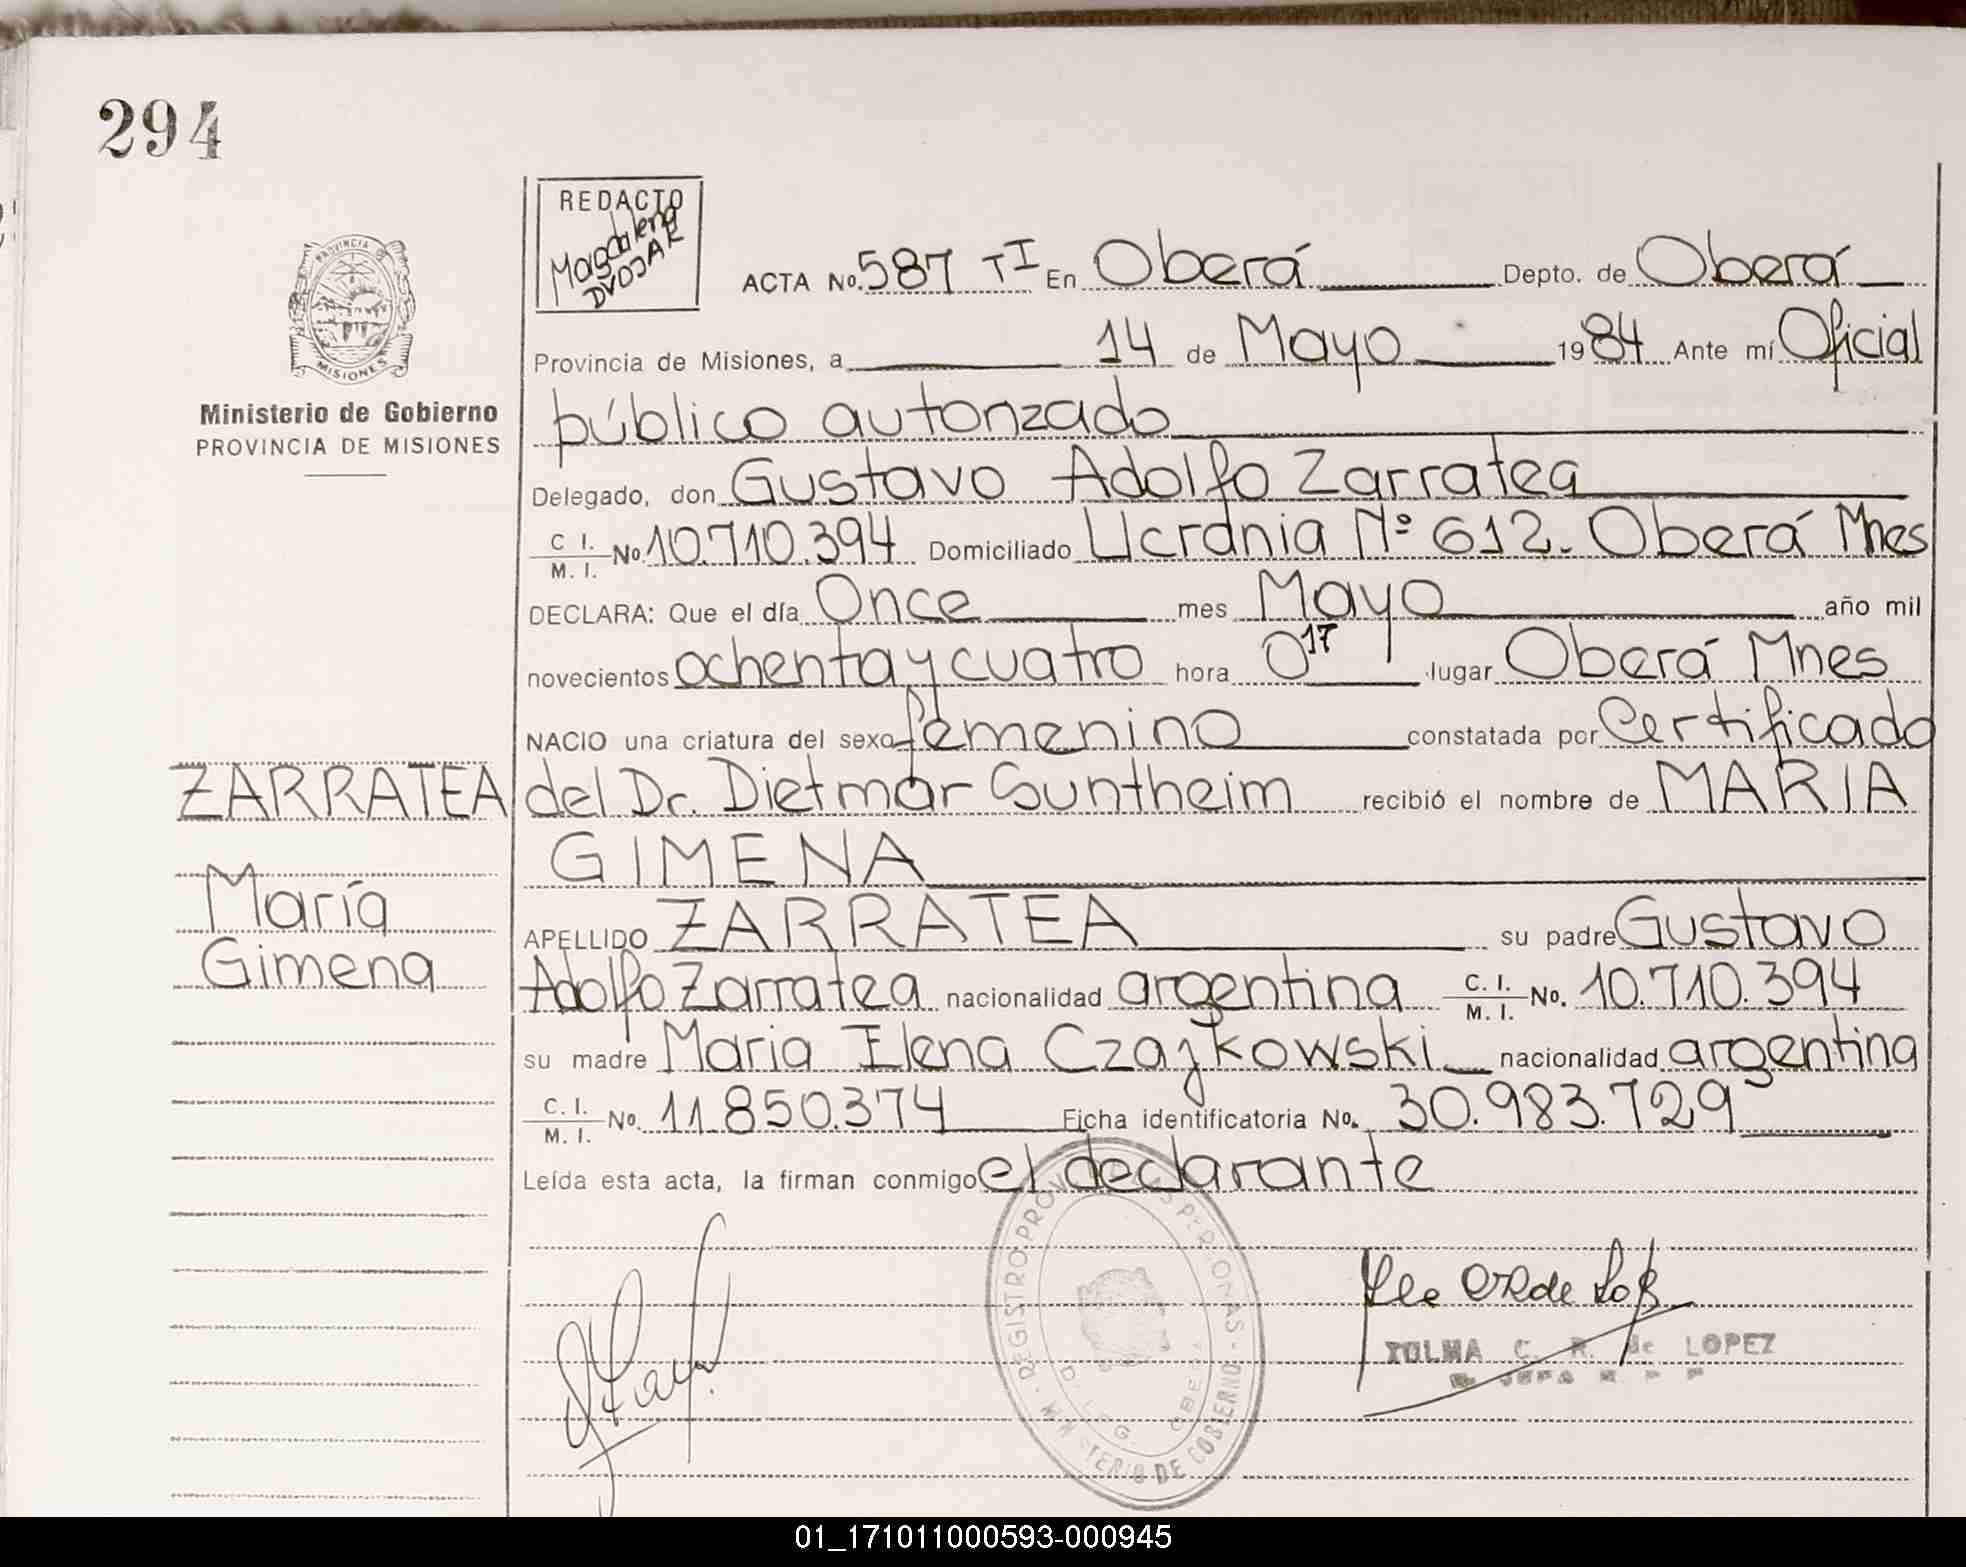 294
REDACTO
Magdalena
DVOJAK
PROVINCIA DE
MISIONES
Ministerio de Gobierno
PROVINCIA DE MISIONES
ACTA No. 587 TI En Oberá Depto. de Oberá
Provincia de Misiones, a 14 de Mayo 1984 Ante mí Oficial
público autorizado
Delegado, don Gustavo Adolfo Zarratea
C I. M. I. No. 10.710.394 Domiciliado Ucrania Nº 612. Oberá Mnes
DECLARA: Que el día Once mes Mayo año mil
novecientos ochenta y cuatro hora 0 17 lugar Oberá Mnes
NACIO una criatura del sexo femenino constatada por Certificado
ZARRATEA
del Dr. Dietmar Suntheim recibió el nombre de MARIA
GIMENA
María
Gimena
APELLIDO ZARRATEA su padre Gustavo
Adolfo Zarratea nacionalidad argentina C. I. M. I. No. 10.710.394
su madre Maria Elena Czajkowski nacionalidad argentina
C. I. M. I. No. 11.850.374 Ficha identificatoria No. 30.983.729
Leída esta acta, la firman conmigo el declarante
REGISTRO PROV. DE LAS PERSONAS - MINISTERIO DE GOBIERNO
DELEG. OBERA
C. R. de LOPEZ
01_171011000593-000945